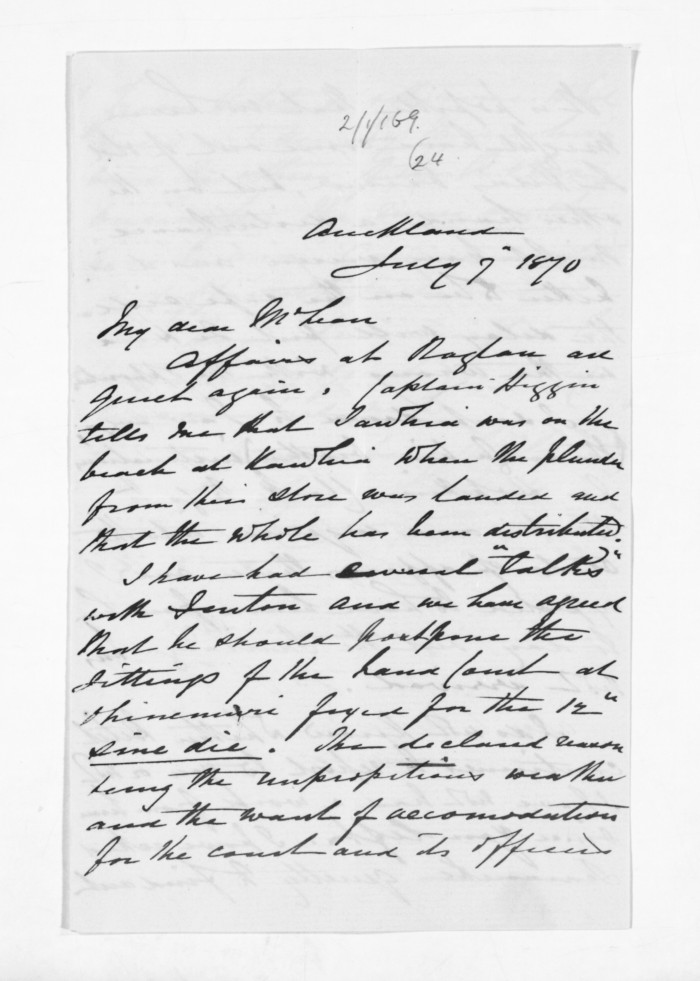 2/1/169.
(24.
Auckland
July 7" 1870
My dear McLean
Affairs at Raglan are
quiet again. Captain Higgin
tells me that Tawhia was on the
beach at Kawhia when the plunder
from this store was landed and
that the whole has been distributed.
I have had several "talks"
with Fenton and we have agreed
that he should postpone the
sittings of the Land Court at
Ohinemuri fixed for the 12"
sine die. The declared reason
being the unpropitious weather
and the want of accomodation
for the court and its officers